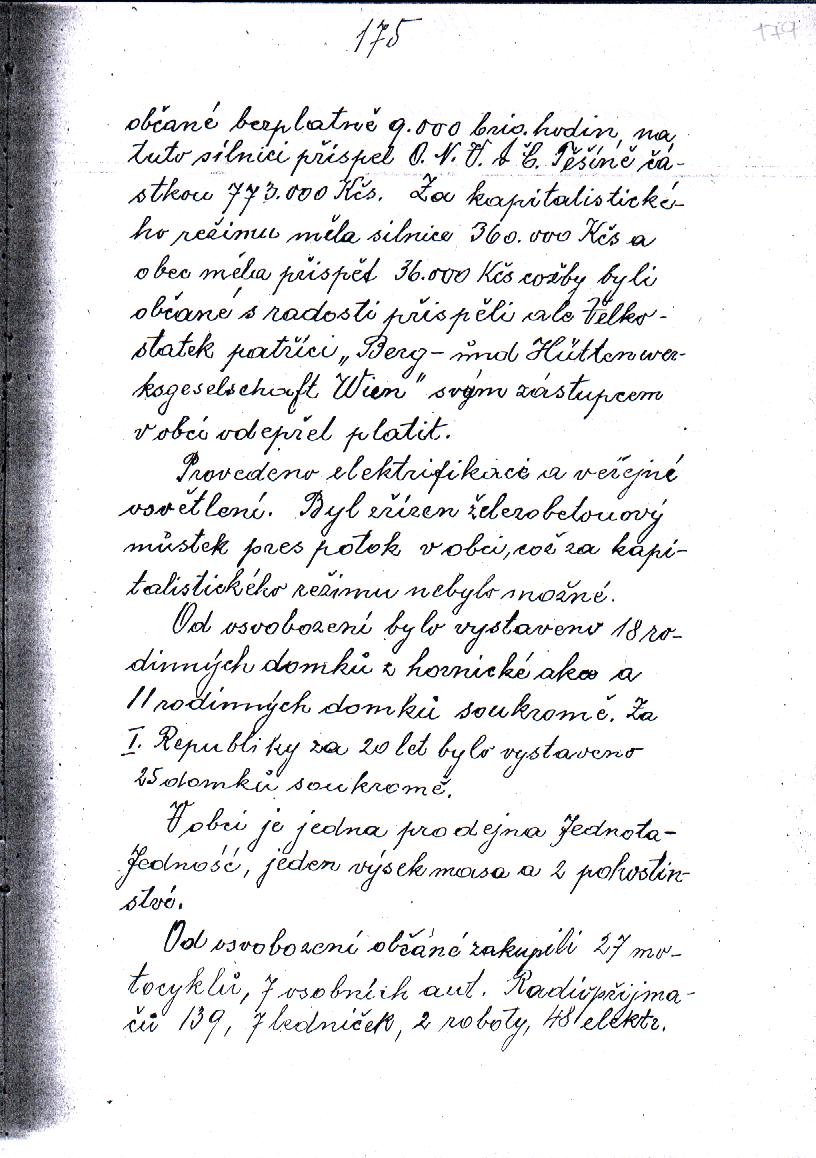 175
179
občané bezplatně 9.000 brig. hodin, na
tuto silnici přispěl O. N. V. v Č. Těšíně čá-
stkou 773.000 Kčs. Za kapitalistické-
ho režimu měla silnice 360.000 Kčs a
obec měla přispět 36.000 Kčs cožby byli
občané s radosti přispěli ale Velko-
statek patřící „Berg- und Hüttenwer-
ksgeselschaft Wien" svým zástupcem
v obci odepřel platit.
Provedeno elektrifikace a veřejné
osvětlení. Byl zřízen železobetonový
můstek pres potok v obci, což za kapi-
talistického režimu nebylo možné.
Od osvobození bylo vystaveno 18 ro-
dinných domků z hornické akce a
11 rodinných domků soukromě. Za
I. Republiky za 20 let bylo vystaveno
25 domků soukromě.
V obci je jedna prodejna Jednota-
Jedność, jeden výsek masa a 2 pohostin-
ství.
Od osvobození občáné zakupili 27 mo-
tocyklů, 7 osobních aut. Radiopřijma-
čů 139, 7 ledniček, 2 roboty, 48 elektr.